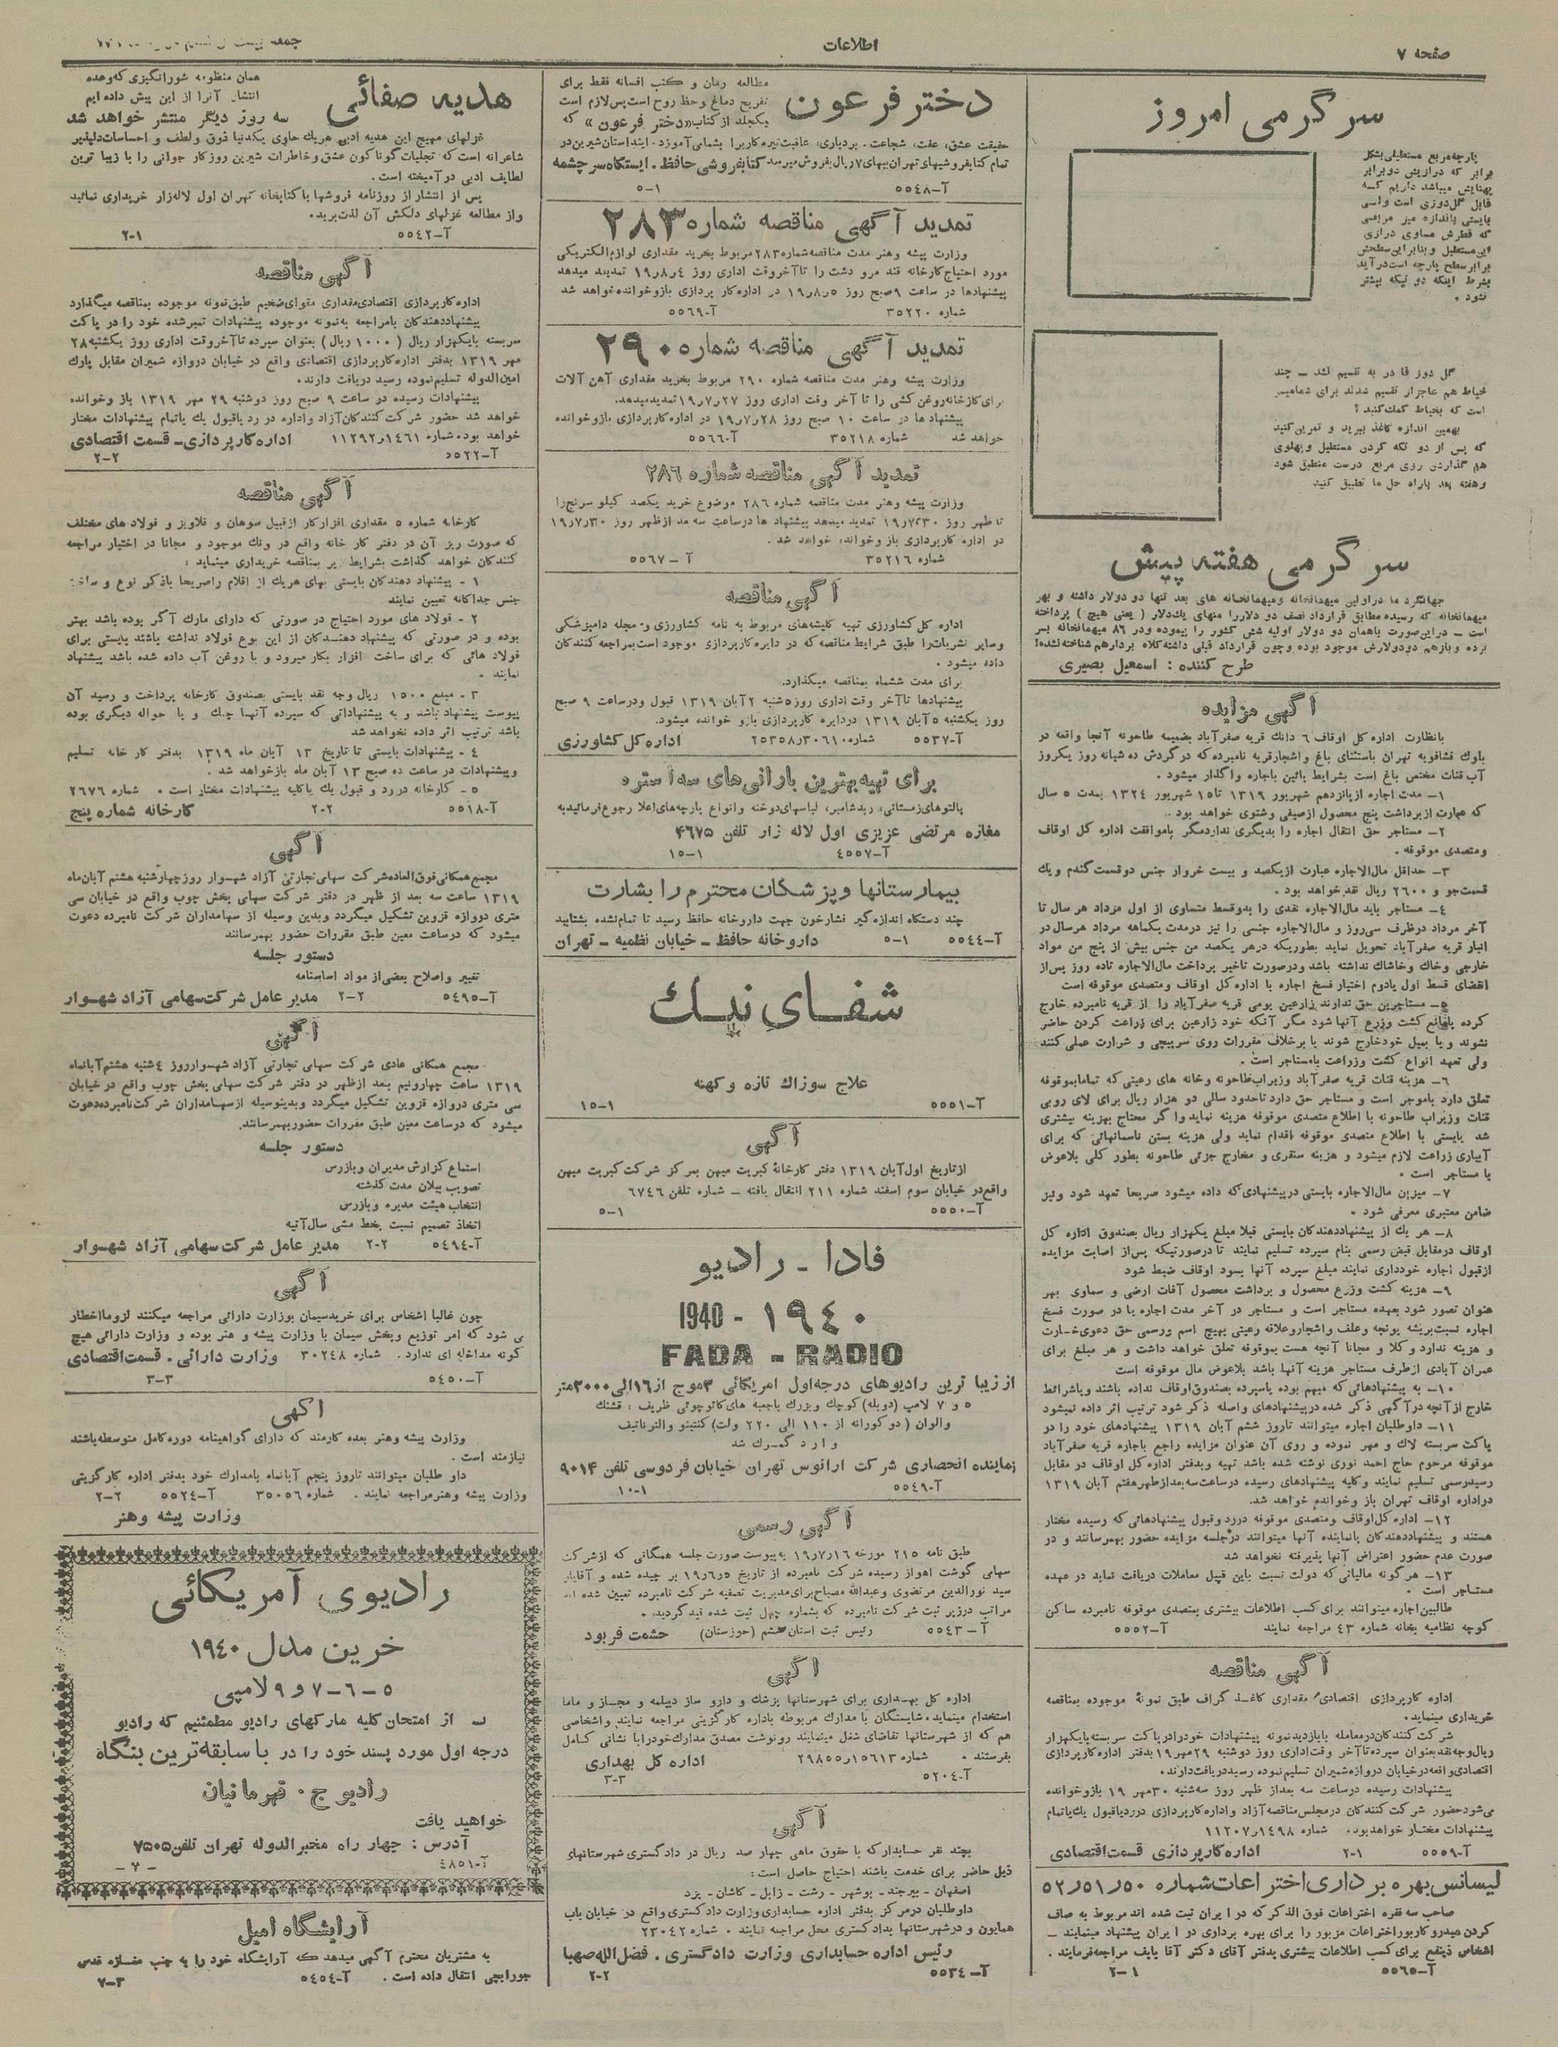 صفحه ۷
اطلاعات
سرگرمی امروز
پارچه مربع مستطیلی بشکل
برابر که درازیش دو برابر
پهنایش میباشد داریم که
قابل گلدوزی است ولی
بایستی باندازه میز مربعی
که قطرش مساوی درازی
این مستطیل و بنابراین سطحش
برابر سطح پارچه است درآید
بشرط اینکه دو تیکه بیشتر
نشود .
گل دوز قادر به تقسیم نشد ــ چند
خیاط هم عاجز از تقسیم شدند برای شما میسر
است که بخیاط کمک کنید ؟
بهمین اندازه کاغذ ببرید و تمرین کنید
که پس از دو تکه کردن مستطیل و پهلوی
هم گذاردن روی مربع درست منطبق شود
و هفته بعد با راه حل ما تطبیق کنید
سرگرمی هفته پیش
جهانگرد ما در اولین میهمانخانه و میهمانخانه های بعد تنها دو دولار داشته و بهر
میهمانخانه که رسیده مطابق قرارداد نصف دو دلار را منهای یک دلار ( یعنی هیچ ) پرداخته
است ــ در این صورت با همان دو دولار اولیه شش کشور را پیموده و در ۸۶ میهمانخانه بسر
برده و باز هم دو دولارش موجود بوده و چون قرارداد قبلی داشته کلاه بردار هم شناخته نشده !
طرح کننده : اسمعیل بصیری
آگهی مزایده
بانظارت اداره کل اوقاف ٦ دانگ قریه صفرآباد بضمیمه طاحونه آنجا واقعه در
بلوک فشافویه تهران باستثنای باغ و اشجار قریه نامبرده که در گردش ده شبانه روز یکروز
آب قنات مختص باغ است بشرایط پائین باجاره واگذار میشود .
۱- مدت اجاره از پانزدهم شهریور ۱۳۱۹ تا ۱۵ شهریور ۱۳۲٤ بمدت ٥ سال
که عبارت از برداشت پنج محصول از صیفی و شتوی خواهد بود .
۲- مستاجر حق انتقال اجاره را بدیگری ندارد مگر با موافقت اداره کل اوقاف
و متصدی موقوفه .
۳- حداقل مال‌الاجاره عبارت از یکصد و بیست خروار جنس دو قسمت گندم و یک
قسمت جو و ۲٦۰۰ ریال نقد خواهد بود .
٤- مستاجر باید مال‌الاجاره نقدی را بدو قسط متساوی از اول مرداد هر سال تا
آخر مرداد در ظرف سی‌روز و مال‌الاجاره جنسی را نیز در مدت یکماهه مرداد هر سال در
انبار قریه صفرآباد تحویل نماید بطوریکه در هر یکصد من جنس بیش از پنج من مواد
خارجی و خاک و خاشاک نداشته باشد و در صورت تاخیر پرداخت مال‌الاجاره تا ده روز پس از
انقضای قسط اول یا دوم اختیار فسخ اجاره با اداره کل اوقاف و متصدی موقوفه است
٥- مستاجرین حق ندارند زارعین بومی قریه صفرآباد را از قریه نامبرده خارج
کرده یا مانع کشت و زرع آنها شود مگر آنکه خود زارعین برای زراعت کردن حاضر
نشوند و یا بمیل خود خارج شوند یا برخلاف مقررات روی سرپیچی و شرارت عملی کنند
ولی تعهد انواع کشت و زراعت با مستاجر است .
٦- هزینه قنات قریه صفرآباد و زیراب طاحونه و خانه های رعیتی که تماما بموقوفه
تعلق دارد با موجر است و مستاجر حق دارد تا حدود سالی دو هزار ریال برای لای روبی
قنات و زیراب طاحونه با اطلاع متصدی موقوفه هزینه نماید و اگر محتاج بهزینه بیشتری
شد بایستی با اطلاع متصدی موقوفه اقدام نماید ولی هزینه بستن ناسمانهائی که برای
آبیاری زراعت لازم میشود و هزینه سنقری و مخارج جزئی طاحونه بطور کلی بلاعوض
با مستاجر است .
۷- میزان مال‌الاجاره بایستی در پیشنهادی که داده میشود صریحا تعهد شود و نیز
ضامن معتبری معرفی شود .
۸- هر یک از پیشنهاد دهندگان بایستی قبلا مبلغ یکهزار ریال بصندوق اداره کل
اوقاف در مقابل قبض رسمی بنام سپرده تسلیم نمایند تا در صورتیکه پس از اصابت مزایده
از قبول اجاره خودداری نمایند مبلغ سپرده آنها بسود اوقاف ضبط شود
۹- هزینه کشت و زرع محصول و برداشت محصول آفات ارضی و سماوی بهر
عنوان تصور شود بعهده مستاجر است و مستاجر در آخر مدت اجاره یا در صورت فسخ
اجاره نسبت بریشه یونجه و علف و اشجار و علاقه رعیتی بهیچ اسم و رسمی حق دعوی خسارت
و هزینه ندارد و کلا و مجانا آنچه هست بموقوفه تعلق خواهد داشت و هر مبلغ برای
عمران آبادی از طرف مستاجر هزینه آنها باشد بلاعوض مال موقوفه است
۱۰- به پیشنهادهائی که مبهم بوده یا سپرده بصندوق اوقاف نداده باشند و یا شرائط
خارج از آنچه در آگهی ذکر شده در پیشنهادهای واصله ذکر شود ترتیب اثر داده نمیشود
۱۱- داوطلبان اجاره میتوانند تا روز ششم آبان ۱۳۱۹ پیشنهادهای خود را در
پاکت سربسته لاک و مهر نموده و روی آن عنوان مزایده راجع باجاره قریه صفرآباد
موقوفه مرحوم حاج احمد نوری نوشته شده باشد تهیه و بدفتر اداره کل اوقاف در مقابل
رسید رسمی تسلیم نمایند و کلیه پیشنهادهای رسیده در ساعت سه بعد از ظهر هفتم آبان ۱۳۱۹
در اداره اوقاف تهران باز و خوانده خواهد شد.
۱۲- اداره کل اوقاف و متصدی موقوفه در رد و قبول پیشنهادهائی که رسیده مختار
هستند و پیشنهاد دهندگان یا نماینده آنها میتوانند در جلسه مزایده حضور بهمرسانند و در
صورت عدم حضور اعتراض آنها پذیرفته نخواهد شد
۱۳- هرگونه مالیاتی که دولت نسبت باین قبیل معاملات دریافت نماید در عهده
مستاجر است .
طالبین اجاره میتوانند برای کسب اطلاعات بیشتری بمتصدی موقوفه نامبرده ساکن
کوچه نظامیه بخانه شماره ٤۳ مراجعه نمایند آ-٥٥٥۲
آگهی مناقصه
اداره کارپردازی اقتصادی مقداری کاغذ گراف طبق نمونه موجوده بمناقصه
خریداری مینماید.
شرکت کنندگان در معامله با بازدید نمونه پیشنهادات خود را در پاکت سربسته با یکهزار
ریال وجه نقد بعنوان سپرده تا آخر وقت اداری روز دوشنبه ۲۹ مهر ۱۹ بدفتر اداره کارپردازی
اقتصادی واقعه در خیابان دروازه شمیران تسلیم نموده رسید دریافت دارند.
پیشنهادات رسیده در ساعت سه بعد از ظهر روز سه‌شنبه ۳۰ مهر ۱۹ باز و خوانده
می‌شود حضور شرکت کنندگان در مجلس مناقصه آزاد و اداره کارپردازی در رد یا قبول یک یا تمام
پیشنهادات مختار خواهد بود. شماره ۱۱۲۰۷ر۱٤۹۸
آ-٥٥٥۹ ۲-۱ اداره کارپردازی قسمت اقتصادی
لیسانس بهره برداری اختراعات شماره ٥۰ر٥۱ر٥۲
صاحب سه فقره اختراعات فوق الذکر که در ایران ثبت شده اند مربوط به صاف
کردن هیدروکاربور اختراعات مزبور را برای بهره برداری در ایران پیشنهاد مینمایند ــ
اشخاص ذینفع برای کسب اطلاعات بیشتری بدفتر آقای دکتر آقا بایف مراجعه فرمایند .
آ-٥٥٦٥ ۲-۱
دختر فرعون
مطالعه رمان و کتب افسانه فقط برای
تفریح دماغ و حظ روح است پس لازم است
یکجلد از کتاب «دختر فرعون » که
حقیقت عشق، عفت، شجاعت، بردباری، عاقبت تیره کاریرا بشما می‌آموزد. این داستان شیرین در
تمام کتابفروشیهای تهران ببهای ۷ ریال بفروش میرسد کتابفروشی حافظ ـ ایستگاه سر چشمه
آ-٥٥٤۸ ٥-۱
تمدید آگهی مناقصه شماره ۲۸۳
وزارت پیشه و هنر مدت مناقصه شماره ۲۸۳ مربوط بخرید مقداری لوازم الکتریکی
مورد احتیاج کارخانه قند مرو دشت را تا آخر وقت اداری روز ٤ر۸ر۱۹ تمدید میدهد
پیشنهادها در ساعت ۹ صبح روز ٥ر۸ر۱۹ در اداره کار پردازی باز و خوانده خواهد شد
شماره ۳٥۲۲۰ آ-٥٥٦۹
تمدید آگهی مناقصه شماره ۲۹۰
وزارت پیشه وهنر مدت مناقصه شماره ۲۹۰ مربوط بخرید مقداری آهن آلات
برای کارخانه روغن کشی را تا آخر وقت اداری روز ۲۷ر۷ر۱۹ تمدید میدهد.
پیشنهاد ها در ساعت ۱۰ صبح روز ۲۸ر۷ر۱۹ در اداره کارپردازی باز و خوانده
خواهد شد شماره ۳٥۲۱۸ آ-٥٥٦٦
تمدید آگهی مناقصه شماره ۲۸٦
وزارت پیشه وهنر مدت مناقصه شماره ۲۸٦ موضوع خرید یکصد کیلو سرنج را
تا ظهر روز ۳۰ر۷ر۱۹ تمدید میدهد پیشنهاد ها در ساعت سه بعد از ظهر روز ۳۰ر۷ر۱۹
در اداره کارپردازی باز و خوانده خواهد شد .
شماره ۳٥۲۱٦ آ – ٥٥٦۷
آگهی مناقصه
اداره کل کشاورزی تهیه کلیشه‌های مربوط به نامه کشاورزی و مجله دامپزشکی
و سایر نشریات را طبق شرایط مناقصه که در دایره کارپردازی موجود است بمراجعه کنندگان
داده میشود .
برای مدت ششماه بمناقصه میگذارد.
پیشنهادها تا آخر وقت اداری روز ٥ شنبه ۲ آبان ۱۳۱۹ قبول و در ساعت ۹ صبح
روز یکشنبه ٥ آبان ۱۳۱۹ در دایره کارپردازی باز و خوانده میشود.
آ-٥٥۳۷ شماره ۳۰٦۱۰ر۲٥۳٥۸ اداره کل کشاورزی
برای تهیه بهترین بارانی‌های سه آستره
پالتوهای زمستانی، ربدشامبر، لباسهای دوخته و انواع پارچه‌های اعلا رجوع فرمائید به
مغازه مرتضی عزیزی اول لاله زار تلفن ٤٦۷٥
آ-٤٥٥۷ ۱٥-۱
بیمارستانها و پزشکان محترم را بشارت
چند دستگاه اندازه گیر فشار خون جهت داروخانه حافظ رسید تا تمام نشده بشتابید
آ-٥٥٤٤ ٥-۱ داروخانه حافظ ــ خیابان نظمیه ــ تهران
شفای نیک
علاج سوزاک تازه و کهنه
آ-٥٥٥۱ ۱٥-۱
آگهی
از تاریخ اول آبان ۱۳۱۹ دفتر کارخانهٔ کبریت میهن بمرکز شرکت کبریت میهن
واقع در خیابان سوم اسفند شماره ۲۱۱ انتقال یافته ــ شماره تلفن ٦۷٤٦
آ-٥٥٥۰ ٥-۱
فادا ـ رادیو
۱۹٤۰ - 1940
FADA - RADIO
از زیبا ترین رادیوهای درجه اول امریکائی ۳ موج از ۱٦ الی ۲۰۰۰ متر
٥ و ۷ لامپ (دوبله) کوچک و بزرگ با جعبه های کائوچوئی ظریف ، قشنگ
و الوان ( دو کورانه از ۱۱۰ الی ۲۲۰ ولت) کنتینو والترناتیف
وارد گمرک شد
نماینده انحصاری شرکت ارانوس تهران خیابان فردوسی تلفن ۹۰۱٤
آ-٥٥٤۹ ۱۰-۱
آگهی رسمی
طبق نامه ۲۱٥ مورخه ۱٦ر۷ر۱۹ به پیوست صورت جلسه همگانی که از شرکت
سهامی گوشت اهواز رسیده شرکت نامبرده از تاریخ ٥ر٦ر۱۹ بر چیده شده و آقایان
سید نورالدین مرتضوی و عبدالله مصباح برای مدیریت تصفیه شرکت نامبرده تعیین شده اند
مراتب در زیر ثبت شرکت نامبرده که بشماره چهل ثبت شده قید گردید.
آ – ٥٥٤۳ رئیس ثبت استان ششم (خوزستان) حشمت فربود
آگهی
اداره کل بهداری برای شهرستانها پزشک و دارو ساز دیپلمه و مجاز و ماما
استخدام مینماید. شایستگان با مدارک مربوطه باداره کارگزینی مراجعه نمایند و اشخاصی
هم که از شهرستانها تقاضای شغل مینمایند رونوشت مصدق مدارک خود را با نشانی کامل
بفرستند . شماره ۱٥٦۱۳ر۲۹۸٥٥ اداره کل بهداری
آ-٥۲۰٤ ۳-۳
آگهی
بچند نفر حسابدار که با حقوق ماهی چهار صد ریال در دادگستری شهرستانهای
ذیل حاضر برای خدمت باشند احتیاج حاصل است :
اصفهان - بیرجند - بوشهر - رشت - زابل - کاشان - یزد
داوطلبان در مرکز بدفتر اداره حسابداری وزارت دادگستری واقع در خیابان باب
همایون و در شهرستانها بدادگستری محل مراجعه نمایند . شماره ۲۳۰٤۲
رئیس اداره حسابداری وزارت دادگستری . فضل الله صهبا
آ- ٥٥۳٤ ۲-۲
جمعه
هدیه صفائی
همان منظومه شورانگیزی که وعده
انتشار آنرا از این پیش داده ایم
سه روز دیگر منتشر خواهد شد
غزلهای مهیج این هدیه ادبی هریک حاوی یکدنیا ذوق و لطف و احساسات دلپذیر
شاعرانه است که تجلیات گوناگون عشق و خاطرات شیرین روزگار جوانی را با زیبا ترین
لطایف ادبی در آمیخته است .
پس از انتشار از روزنامه فروشها یا کتابخانه تهران اول لاله‌زار خریداری نمائید
و از مطالعه غزلهای دلکش آن لذت برید.
آ-٥٥٤۲ ۲-۱
آگهی مناقصه
اداره کارپردازی اقتصادی مقداری مقوای ضخیم طبق نمونه موجوده بمناقصه میگذارد
پیشنهاد دهندگان با مراجعه به نمونه موجوده پیشنهادات تمبر شده خود را در پاکت
سربسته با یکهزار ریال ( ۱۰۰۰ ریال ) بعنوان سپرده تا آخر وقت اداری روز یکشنبه ۲۸
مهر ۱۳۱۹ بدفتر اداره کارپردازی اقتصادی واقع در خیابان دروازه شمیران مقابل پارک
امین الدوله تسلیم نموده رسید دریافت دارند.
پیشنهادات رسیده در ساعت ۹ صبح روز دوشنبه ۲۹ مهر ۱۳۱۹ باز و خوانده
خواهد شد حضور شرکت کنندگان آزاد و اداره در رد یا قبول یک یا تمام پیشنهادات مختار
خواهد بود. شماره ۱٤٦۱ر۱۱۲۹۲ اداره کارپردازی ـ قسمت اقتصادی
آ-٥٥۲۲ ۲-۲
آگهی مناقصه
کارخانه شماره ٥ مقداری افزار کار از قبیل سوهان و قلاویز و فولاد های مختلف
که صورت ریز آن در دفتر کار خانه واقع در ونک موجود و مجانا در اختیار مراجعه
کنندگان خواهد گذاشت بشرایط زیر بمناقصه خریداری مینماید :
۱ - پیشنهاد دهندگان بایستی بهای هریک از اقلام را صریحا با ذکر نوع و ساخت
جنس جداگانه تعیین نمایند
۲ - فولاد های مورد احتیاج در صورتی که دارای مارک آگر بوده باشد بهتر
بوده و در صورتی که پیشنهاد دهندگان از این نوع فولاد نداشته باشند بایستی برای
فولاد هائی که برای ساخت افزار بکار میرود و با روغن آب داده شده باشد پیشنهاد
نمایند .
۳ - مبلغ ۱٥۰۰ ریال وجه نقد بایستی بصندوق کارخانه پرداخت و رسید آن
پیوست پیشنهاد باشد و به پیشنهاداتی که سپرده آنها چک و یا حواله دیگری بوده
باشد ترتیب اثر داده نخواهد شد
٤ - پیشنهادات بایستی تا تاریخ ۱۳ آبان ماه ۱۳۱۹ بدفتر کار خانه تسلیم
و پیشنهادات در ساعت ده صبح ۱۳ آبان ماه باز خواهد شد .
٥ - کارخانه در رد و قبول یک یا کلیه پیشنهادات مختار است . شماره ۲٦۷٦
آ-٥٥۱۸ ۲-۲ کارخانه شماره پنج
آگهی
مجمع همگانی فوق العاده شرکت سهامی تجارتی آزاد شهسوار روز چهارشنبه هشتم آبان ماه
۱۳۱۹ ساعت سه بعد از ظهر در دفتر شرکت سهامی پخش چوب واقع در خیابان سی
متری دروازه قزوین تشکیل میگردد و بدین وسیله از سهامداران شرکت نامبرده دعوت
میشود که در ساعت معین طبق مقررات حضور بهمرسانند
دستور جلسه
تغییر و اصلاح بعضی از مواد اساسنامه
آ-٥٤۹٥ ۲-۲ مدیر عامل شرکت سهامی آزاد شهسوار
آگهی
مجمع همگانی عادی شرکت سهامی تجارتی آزاد شهسوار روز ٤ شنبه هشتم آبانماه
۱۳۱۹ ساعت چهار و نیم بعد از ظهر در دفتر شرکت سهامی پخش چوب واقع در خیابان
سی متری دروازه قزوین تشکیل میگردد و بدینوسیله از سهامداران شرکت نامبرده دعوت
میشود که در ساعت معین طبق مقررات حضور بهمرسانند.
دستور جلسه
استماع گزارش مدیران و بازرس
تصویب بیلان مدت گذشته
انتخاب هیئت مدیره و بازرس
اتخاذ تصمیم نسبت بخط مشی سال آتیه
آ-٥٤۹٤ ۲-۲ مدیر عامل شرکت سهامی آزاد شهسوار
آگهی
چون غالبا اشخاص برای خرید سیمان بوزارت دارائی مراجعه میکنند لزوما اخطار
می شود که امر توزیع و پخش سیمان با وزارت پیشه و هنر بوده و وزارت دارائی هیچ
گونه مداخله ای ندارد . شماره ۳۰۲٤۸ وزارت دارائی ـ قسمت اقتصادی
آ-٥٤٥۰ ۳-۳
آگهی
وزارت پیشه وهنر بعده کارمند که دارای گواهینامه دوره کامل متوسطه باشند
نیازمند است .
داو طلبان میتوانند تا روز پنجم آبانماه با مدارک خود بدفتر اداره کارگزینی
وزارت پیشه و هنر مراجعه نمایند . شماره ۳٥۰٥٦ آ-٥٥۲٤ ۲-۲
وزارت پیشه وهنر
رادیوی آمریکائی
خرین مدل ۱۹٤۰
٥-٦-۷ و ۹ لامپی
از امتحان کلیه مارکهای رادیو مطمئنیم که رادیو
درجه اول مورد پسند خود را در با سابقه ترین بنگاه
رادیو ج . قهرمانیان
خواهید یافت
آدرس : چهار راه مخبرالدوله تهران تلفن ۷٥۰٥
آ-٤۸٥۱ -۷-
آرایشگاه امیل
به مشتریان محترم آگهی میدهد که آرایشگاه خود را به جنب مغازه قدس
جورابچی انتقال داده است . آ-٥٤٥٤ ۷-۳